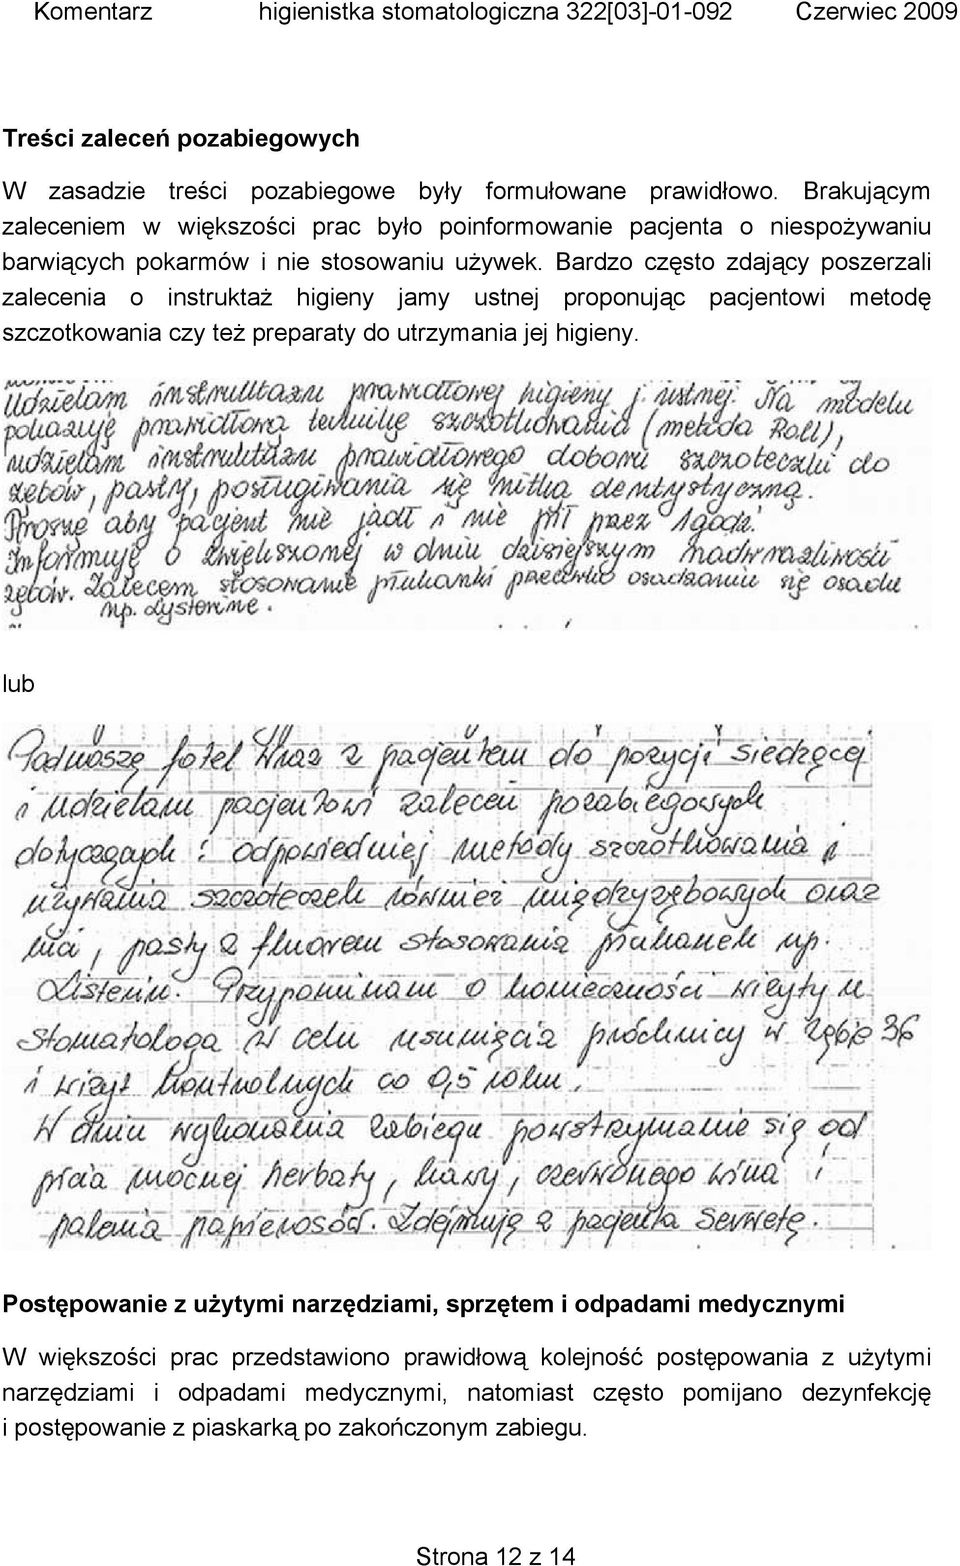 Komentarz higienistka stomatologiczna 322[03]-01-092 Czerwiec 2009
Treści zaleceń pozabiegowych
W zasadzie treści pozabiegowe były formułowane prawidłowo. Brakującym
zaleceniem w większości prac było poinformowanie pacjenta o niespożywaniu
barwiących pokarmów i nie stosowaniu używek. Bardzo często zdający poszerzali
zalecenia o instruktaż higieny jamy ustnej proponując pacjentowi metodę
szczotkowania czy też preparaty do utrzymania jej higieny.
Udzielam instruktażu prawidłowej higieny j. ustnej. Na modelu
pokazuję prawidłową technikę szczotkowania (metoda Roll),
udzielam instruktażu prawidłowego doboru szczoteczki do
zębów, pasty, posługiwania się nitką dentystyczną.
Proszę aby pacjent nie jadł i nie pił przez 1godz.
Informuję o zwiększonej w dniu dzisiejszym nadwrażliwości
zębów. Zalecam stosowanie płukanki przeciwko osadzaniu się osadu
np. Lysterine.
lub
Podnoszę fotel wraz z pacjentem do pozycji siedzęcej
i udzielam pacjentowi zaleceń pozabiegowych
dotyczących: odpowiedniej metody szczotkowania i
używania szczoteczek również międzyzębowych oraz
nici, pasty z fluorem stosowania płukanek np.
Listerin. Przypominam o konieczności wizyty u
stomatologa w celu usunięcia próchnicy w zębie 36
i wizyt kontrolnych co 0,5 roku.
W dniu wykonania zabiegu powstrzymanie się od
picia mocnej herbaty, kawy, czerwonego wina i
palenia papierosów. Zdejmuję z pacjenta serwetę.
Postępowanie z użytymi narzędziami, sprzętem i odpadami medycznymi
W większości prac przedstawiono prawidłową kolejność postępowania z użytymi
narzędziami i odpadami medycznymi, natomiast często pomijano dezynfekcję
i postępowanie z piaskarką po zakończonym zabiegu.
Strona 12 z 14